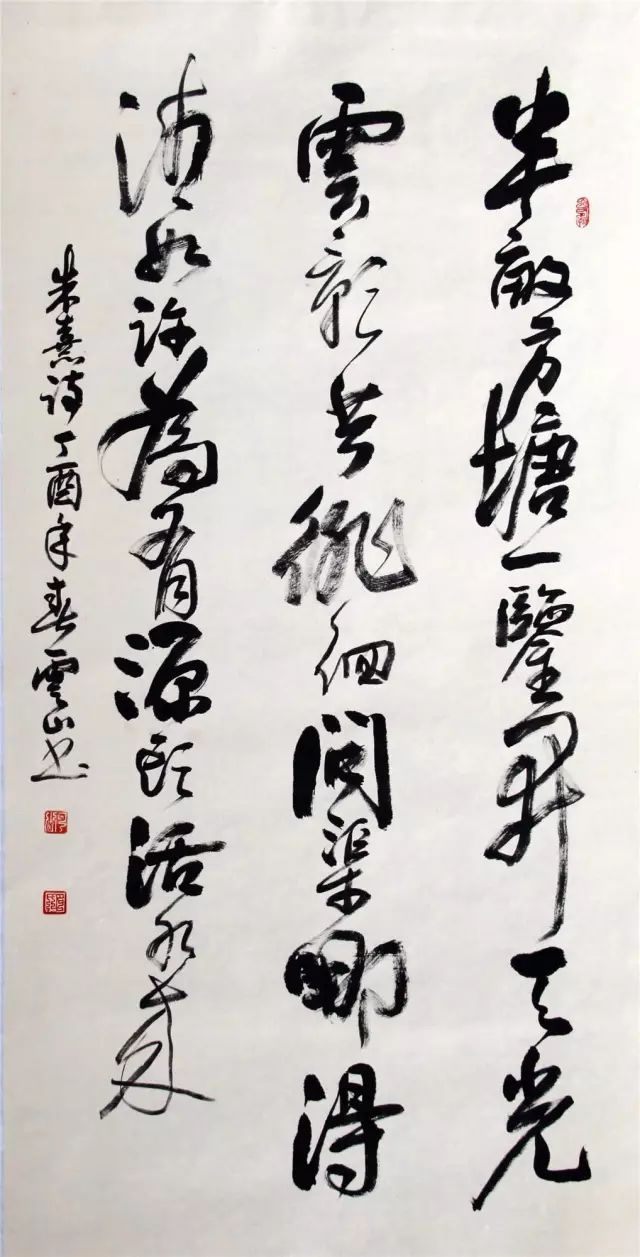 半畝方塘一鑒開天光
雲影共徘徊問渠哪得
清如許為有源頭活水來
朱熹詩丁酉年春雲山书